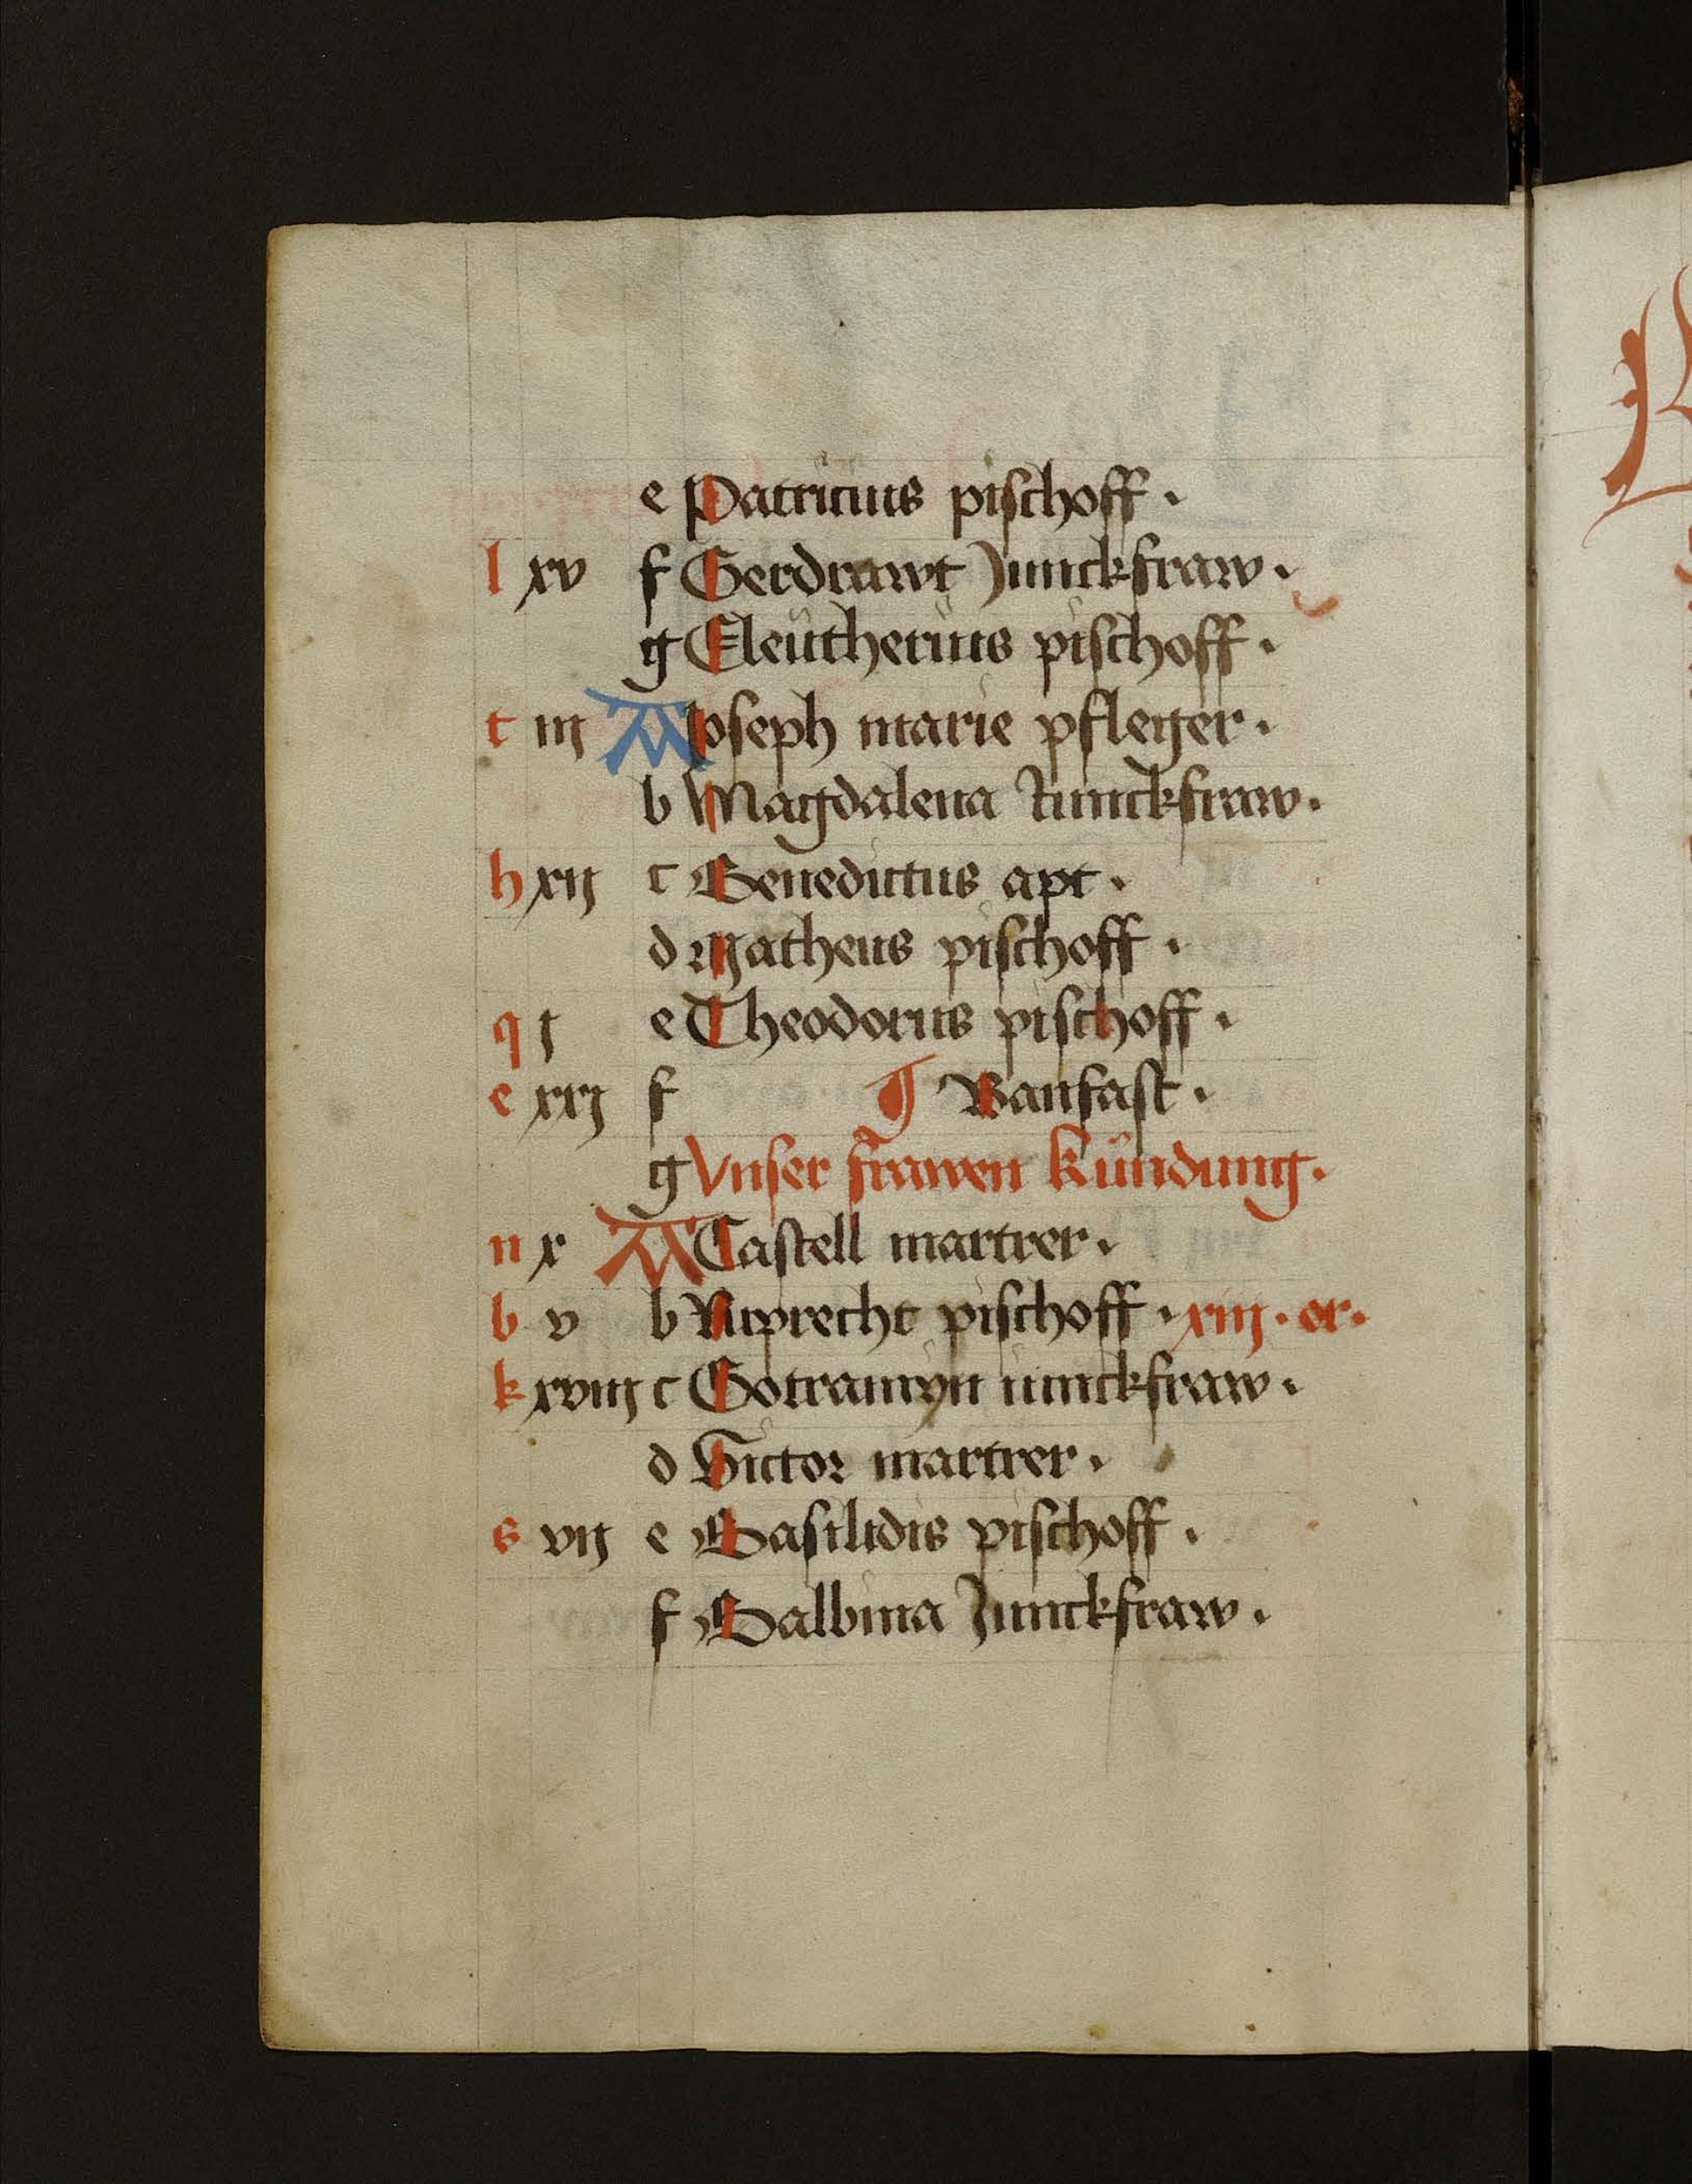 e Patricius pischoff .
l xv f Gerdrawt Junckfraw .
g Eleütherius pischoff .
t iij A Joseph marie pfleger .
b Magdalena Junckfraw .
h xij c Benedictus apt .
d Matheus pischoff .
q j e Theodorus pischoff .
e xxj f ¶ Banfast .
g Vnser frawen kündung .
n x A Castell martrer .
b v b Ruprecht pischoff . xiiij . er .
k xviij c Gotramyn iunckfraw .
d Victor martrer .
s vij e Basilidis pischoff .
f Balbina Junckfraw .